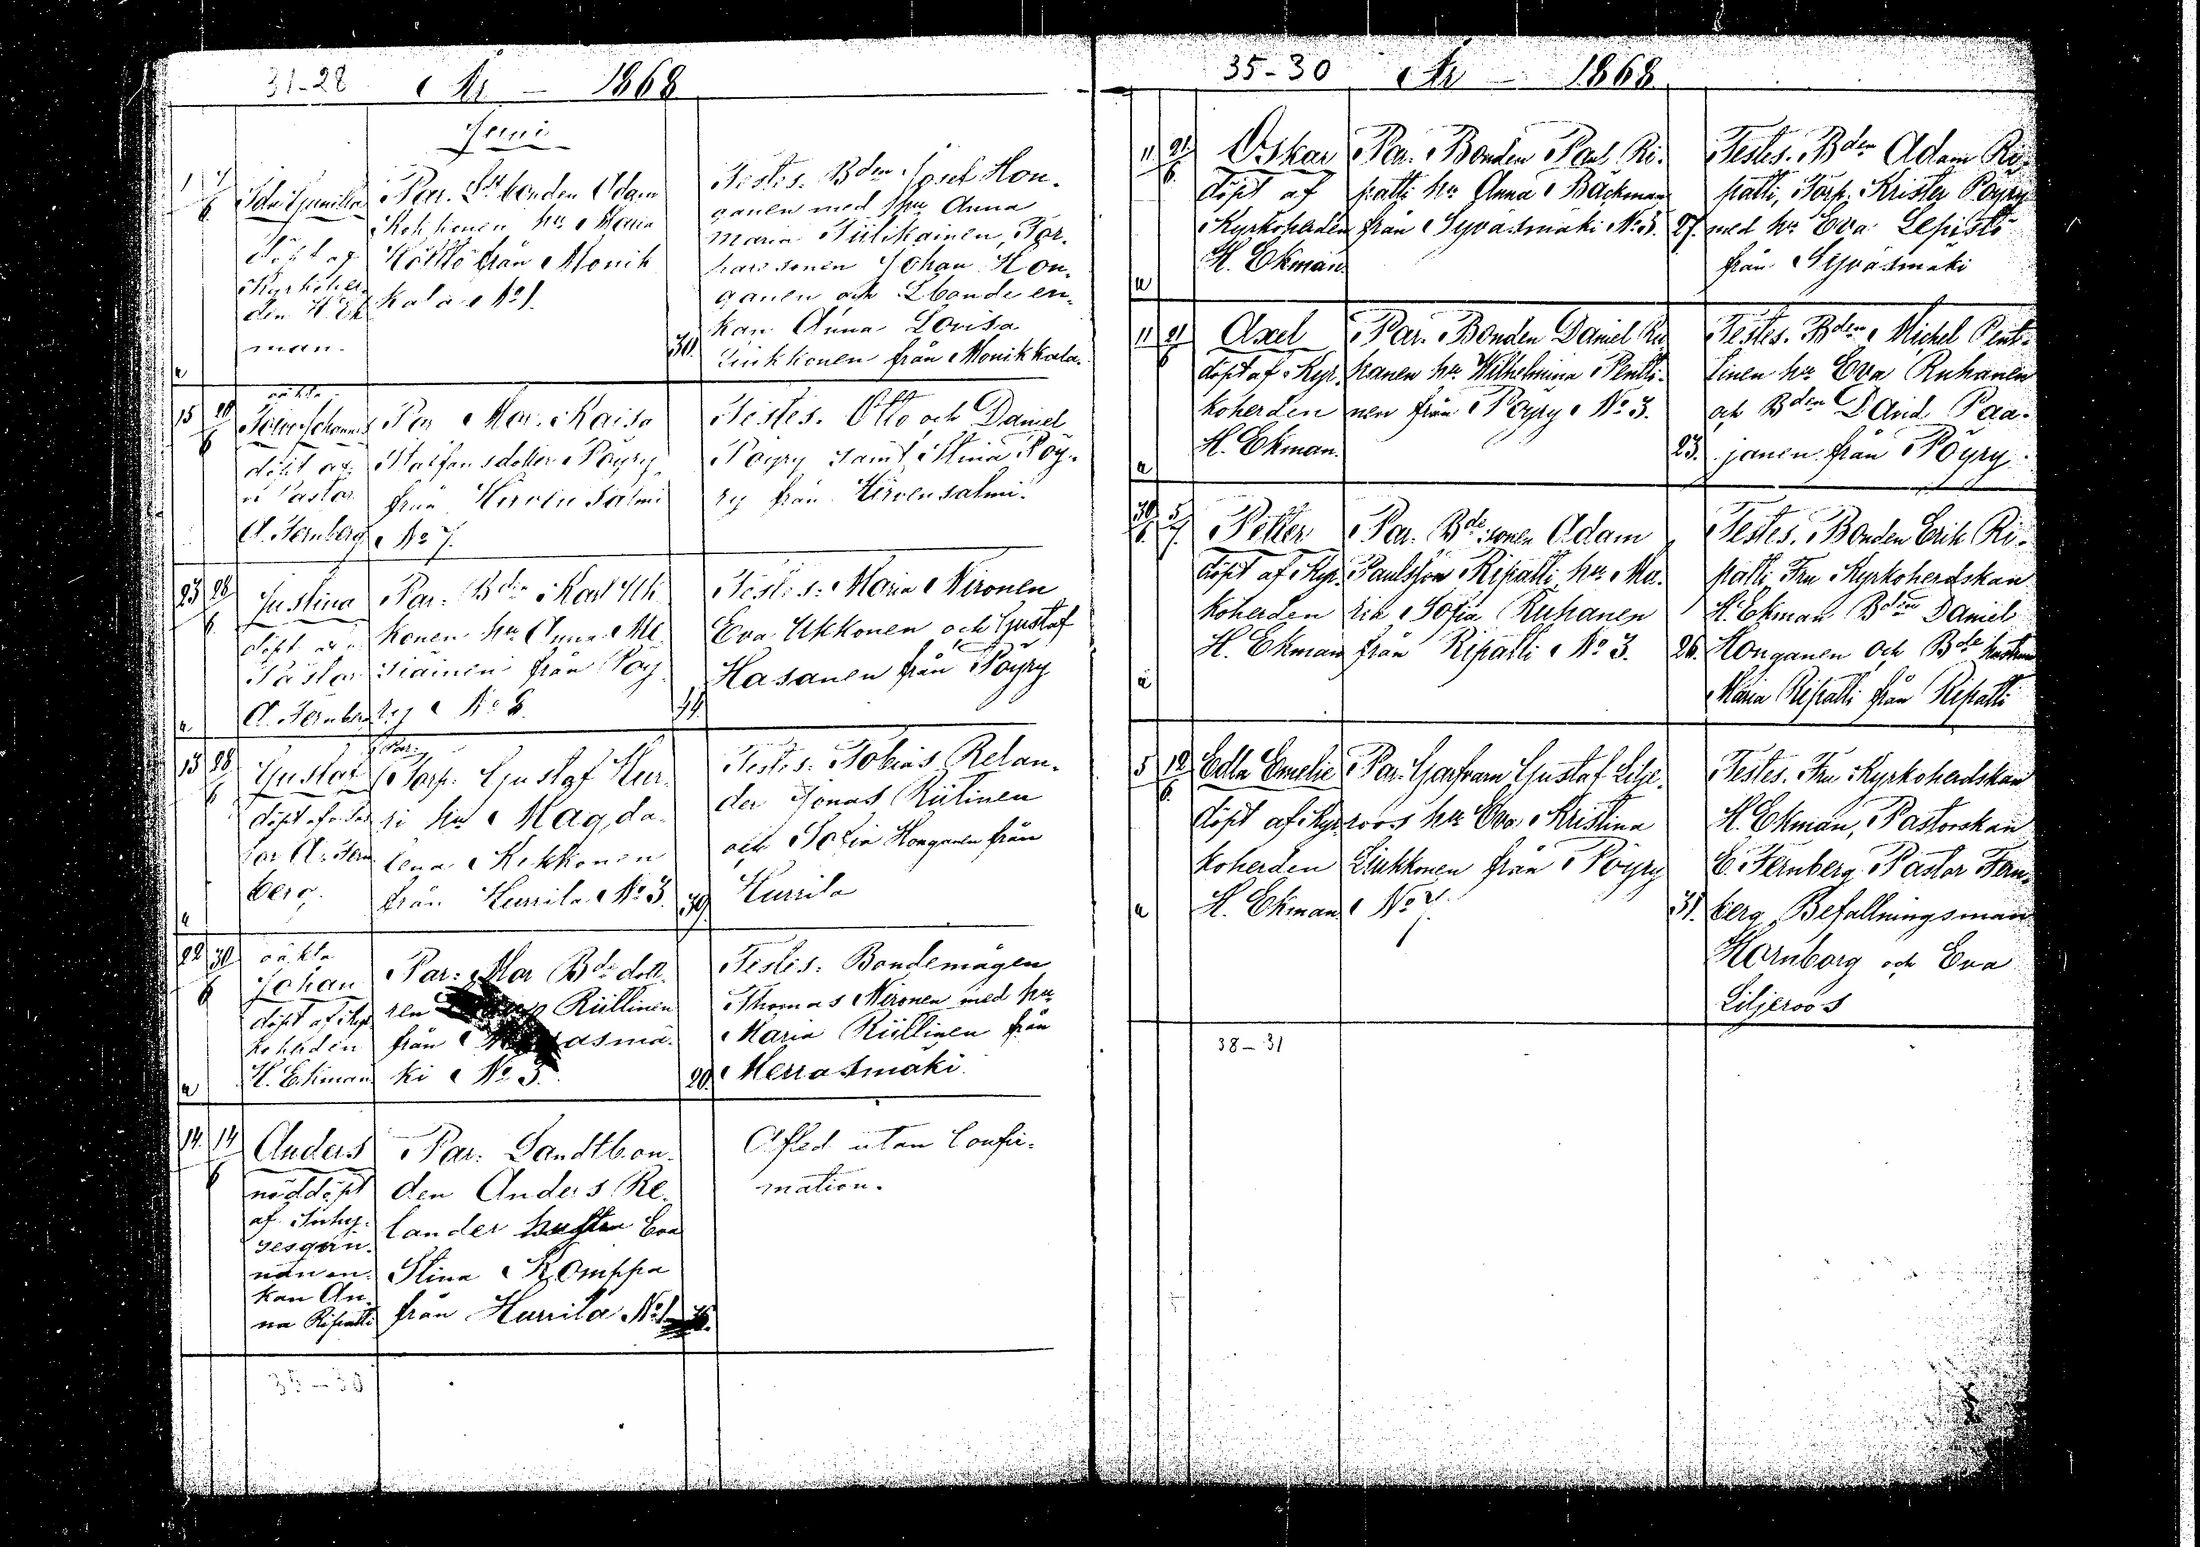 31-28 År - 1868
Juni
1 7/6 Ida Gunilla
döpt af
Kyrkoher-
den H. Ek
man.
Par. Ldtbonden Adam
Kekkonen hu Maria
Költtö från Monik
kala No 1.
30.
Testes. Bden Josef Hon-
ganen med hu Anna
Maria Tülikainen, Tor-
parsonen Johan Hon-
ganen och Lbonde en-
kan Anna Lovisa
Liukkonen från Monikkala.
15 28/6 oäkta
Johannes
döpt af
v Pastor
A. Fernberg
Par Mor. Kaisa
Staffansdotter Pöyry
från Hirvensalmi
No 7.
Testes. Otto och Daniel
Pöyry samt Stina Pöy-
ry från Hirvensalmi.
23 28/6 Justina
döpt av v
Pastor
A. Fernberg
Par: Bden Karl Uk
konen hu Anna
från Pöy
ry No
Testes: Maria Nironen
Eva Ukkonen och Gustaf
Hasanen från Pöyry
13 28/6 Gustaf
döpt af v. Pas
tor A. Fern
berg.
Par.
Torp. Gustaf Kur-
ki hu Magda-
lena Kekkonen
från Hurrila No 3.
39
Testes: Tobias Relan-
der Jonas Riitinen
och Sofia Honganen från
Hurrila
22 30/6 oäkta
Johan
döpt af Kyr
koherden
H. Ekman
Par: Mor Bde dott-
ren Riittinen
från asmä-
ki No 3.
20.
Testes: Bondemågen
Thomas Nironen med hu
Maria Riittinen från
Merrasmäki.
14. 14/6 Anders
nöddöpt
af Inhy-
sesqvin-
nan en-
kan An-
na Ripatti
Par. Landtbon-
den Anders Re-
lander hustru Eva
Stina Komppa
från Hurrila No 1
Afled utan Confir-
mation.
35-30
35-30 År - 1868.
11 21/6 Oskar
döpt af
Kyrkoherden
H. Ekman.
Par. Bonden Paul Ri-
patti hu Anna Bäckman
från Syväsmäki No 3.
27.
Testes. Bden Adam Ri-
patti, Torp. Krister Pöyry
med hu Eva Lepistö
från Syväsmäki
11 21/6 Axel
döpt af Kyr-
koherden
H. Ekman.
Par. Bonden Daniel Ru
hanen hu Wilhelmina Pentti-
nen från Pöyry No 3.
23.
Testes. Bden Michel Pent-
tinen hu Eva Ruhanen
och Bden David Paa-
janen från Pöyry
30/6 5/7 Petter
döpt af Kyr-
koherden
H. Ekman
Par. Bdesonen Adam
Paulsson Ripatti hu Ma-
ria Sofia Ruhanen
från Ripatti No 3.
26.
Testes. Bonden Erik Ri-
patti, Fru Kyrkoherdskan
H. Ekman Bden Daniel
Honganen och Bde hustrun
Maria Ripatti från Ripatti
5 12/6 Edla Emelie
döpt af Kyr
koherden
H. Ekman
Par. Garfvarn Gustaf Lilje-
roos hu Eva Kristina
Liukkonen från Pöyry
No 7.
31.
Testes. Fru Kyrkoherdskan
H. Ekman, Pastorskan
E. Fernberg Pastor Fern-
berg Befallningsman
Hornborg och Eva
Liljeroos
38-31